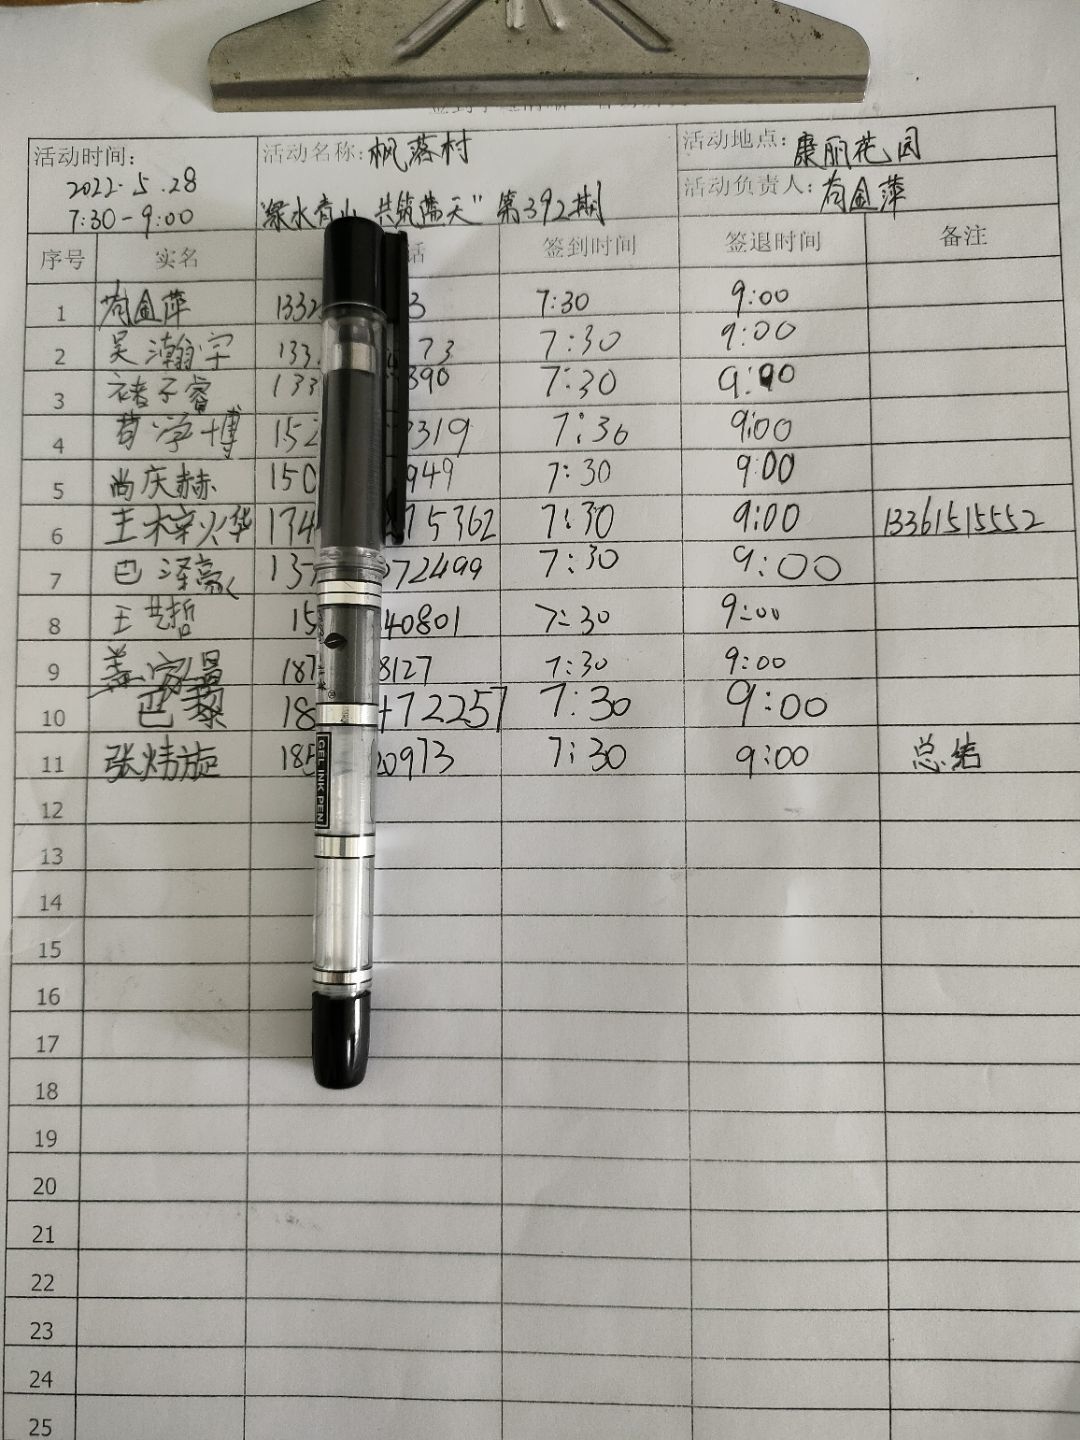 活动时间:
2022.5.28
7:30-9:00
活动名称: 枫落村
"绿水青山 共筑蓝天"第392期
活动地点: 康丽花园
活动负责人: 苟金萍
序号 实名 话 签到时间 签退时间 备注
1 苟金萍 1332 3 7:30 9:00
2 吴瀚宇 133 73 7:30 9:00
3 褚子睿 133 390 7:30 9:00
4 苟学博 152 3319 7:30 9:00
5 尚庆赫 150 949 7:30 9:00
6 王梓烨 134 75362 7:30 9:00 13361515552
7 巴泽 13 72499 7:30 9:00
8 王艺哲 15 40801 7:30 9:00
9 187 8127 7:30 9:00
10 巴黎 18 72257 7:30 9:00
11 张炜旋 185 20973 7:30 9:00 总结
GEL INK PEN
12
13
14
15
16
17
18
19
20
21
22
23
24
25